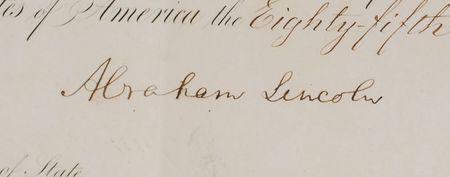 tes of America the Eighty-fifth
Abraham Lincoln
of State